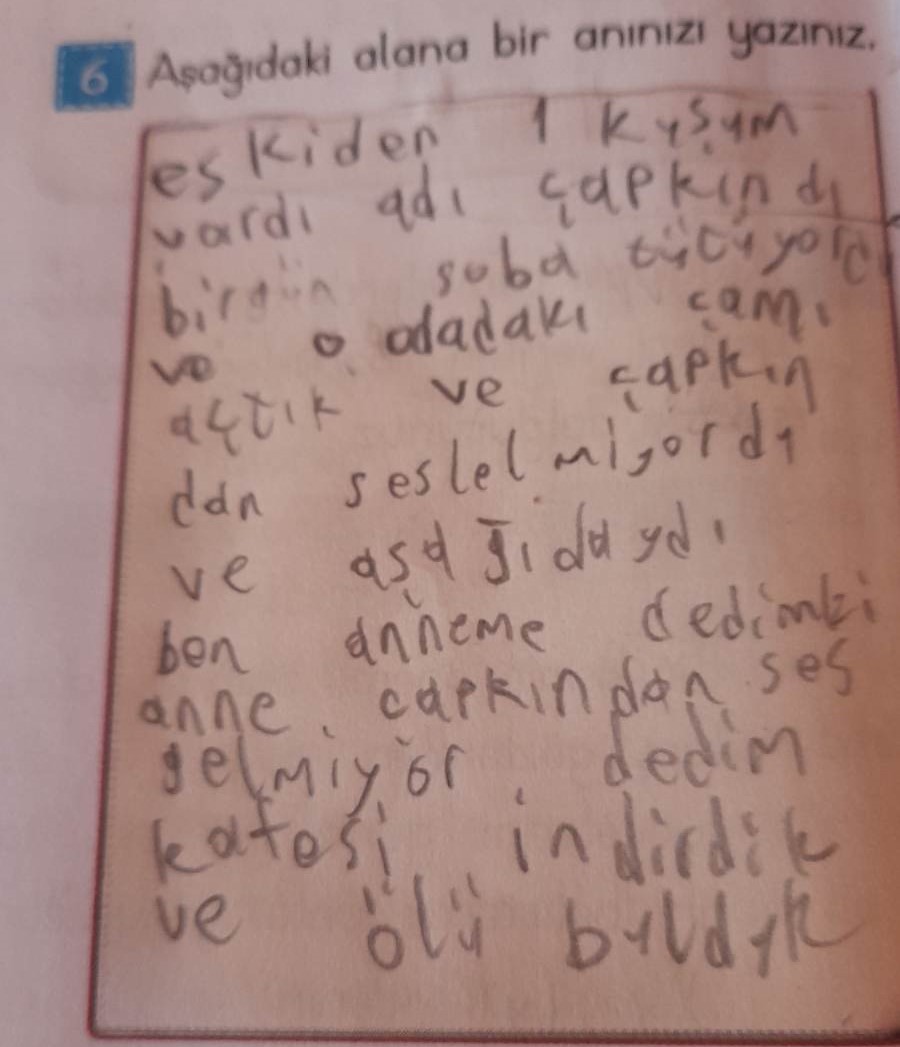 6 Aşağıdaki alana bir anınızı yazınız.
eskiden 1 kuşum
vardı adı çapkındı
birgün soba tütüyord
ve o odadakı camı
açtık ve çapkın
dan seslel miyordı
ve aşağıdaydı
ben anneme dedimki
anne. çapkından ses
gelmiyor dedim
kafesi indirdik
ve ölü bulduk